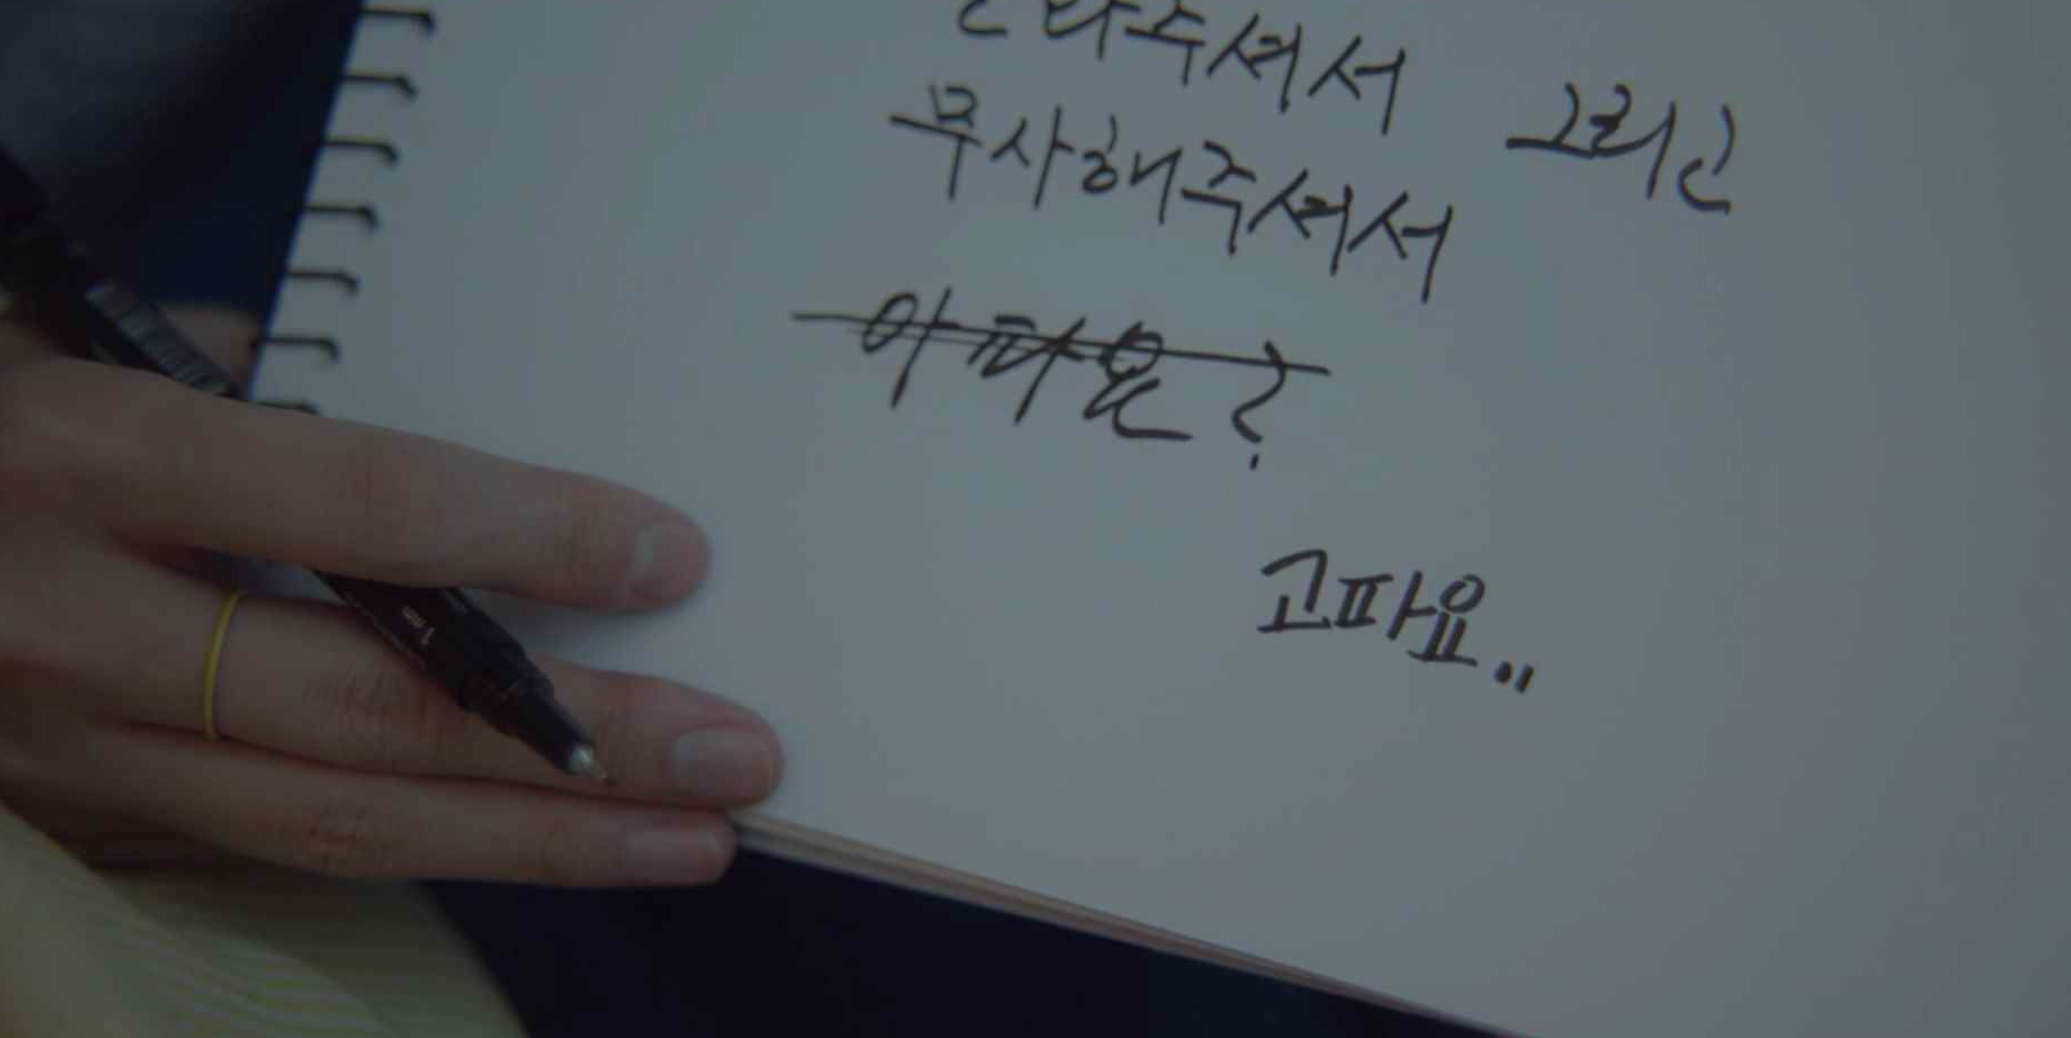 와주셔서 그리고
무사해주셔서
아파요?
고파요..
1mm